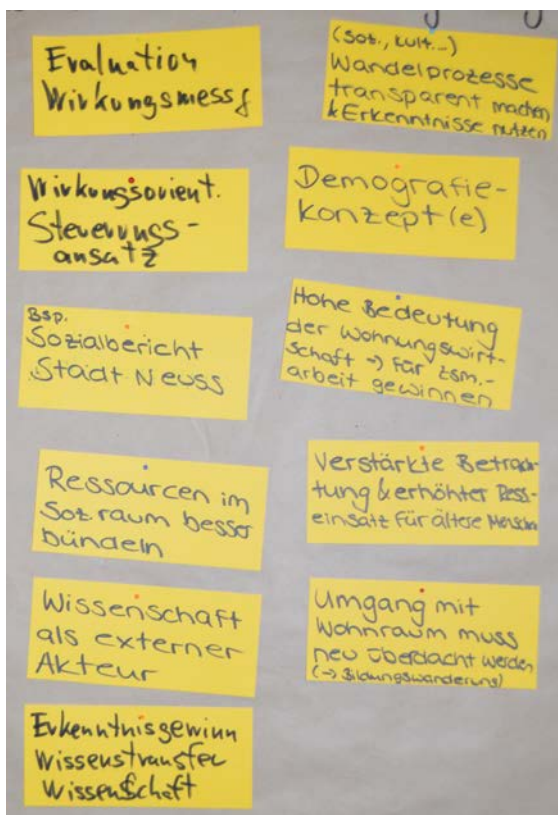 Evaluation
Wirkungsmess
Wirkungsorient.
Steuerungs-
ansatz
Bsp.
Sozialbericht
Stadt Neuss
Ressourcen im
Soz.raum besser
bündeln
Wissenschaft
als externer
Akteur
Erkenntnisgewinn
Wissenstransfer
Wissenschaft
(soz., kult...)
Wandelprozesse
transparent machen
& Erkenntnisse nutzen
Demografie-
konzept(e)
Hohe Bedeutung
der Wohnungswirt-
schaft → für zsm.-
arbeit gewinnen
Verstärkte Betrach-
tung & erhöhter Ress-
einsatz für ältere Menschen
Umgang mit
Wohnraum muss
neu überdacht werden
(→ Bildungswanderung)